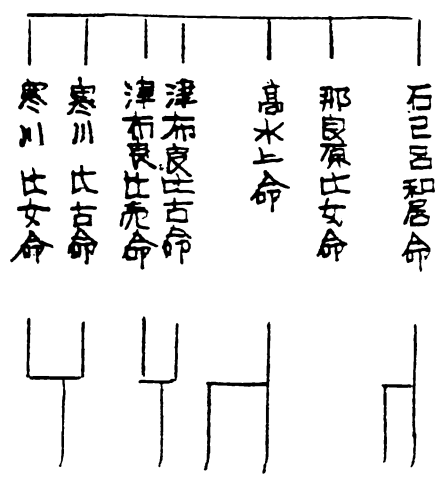 石己呂和居命
那良原比女命
高水上命
津布良比古命
津布良比売命
寒川比古命
寒川比女命